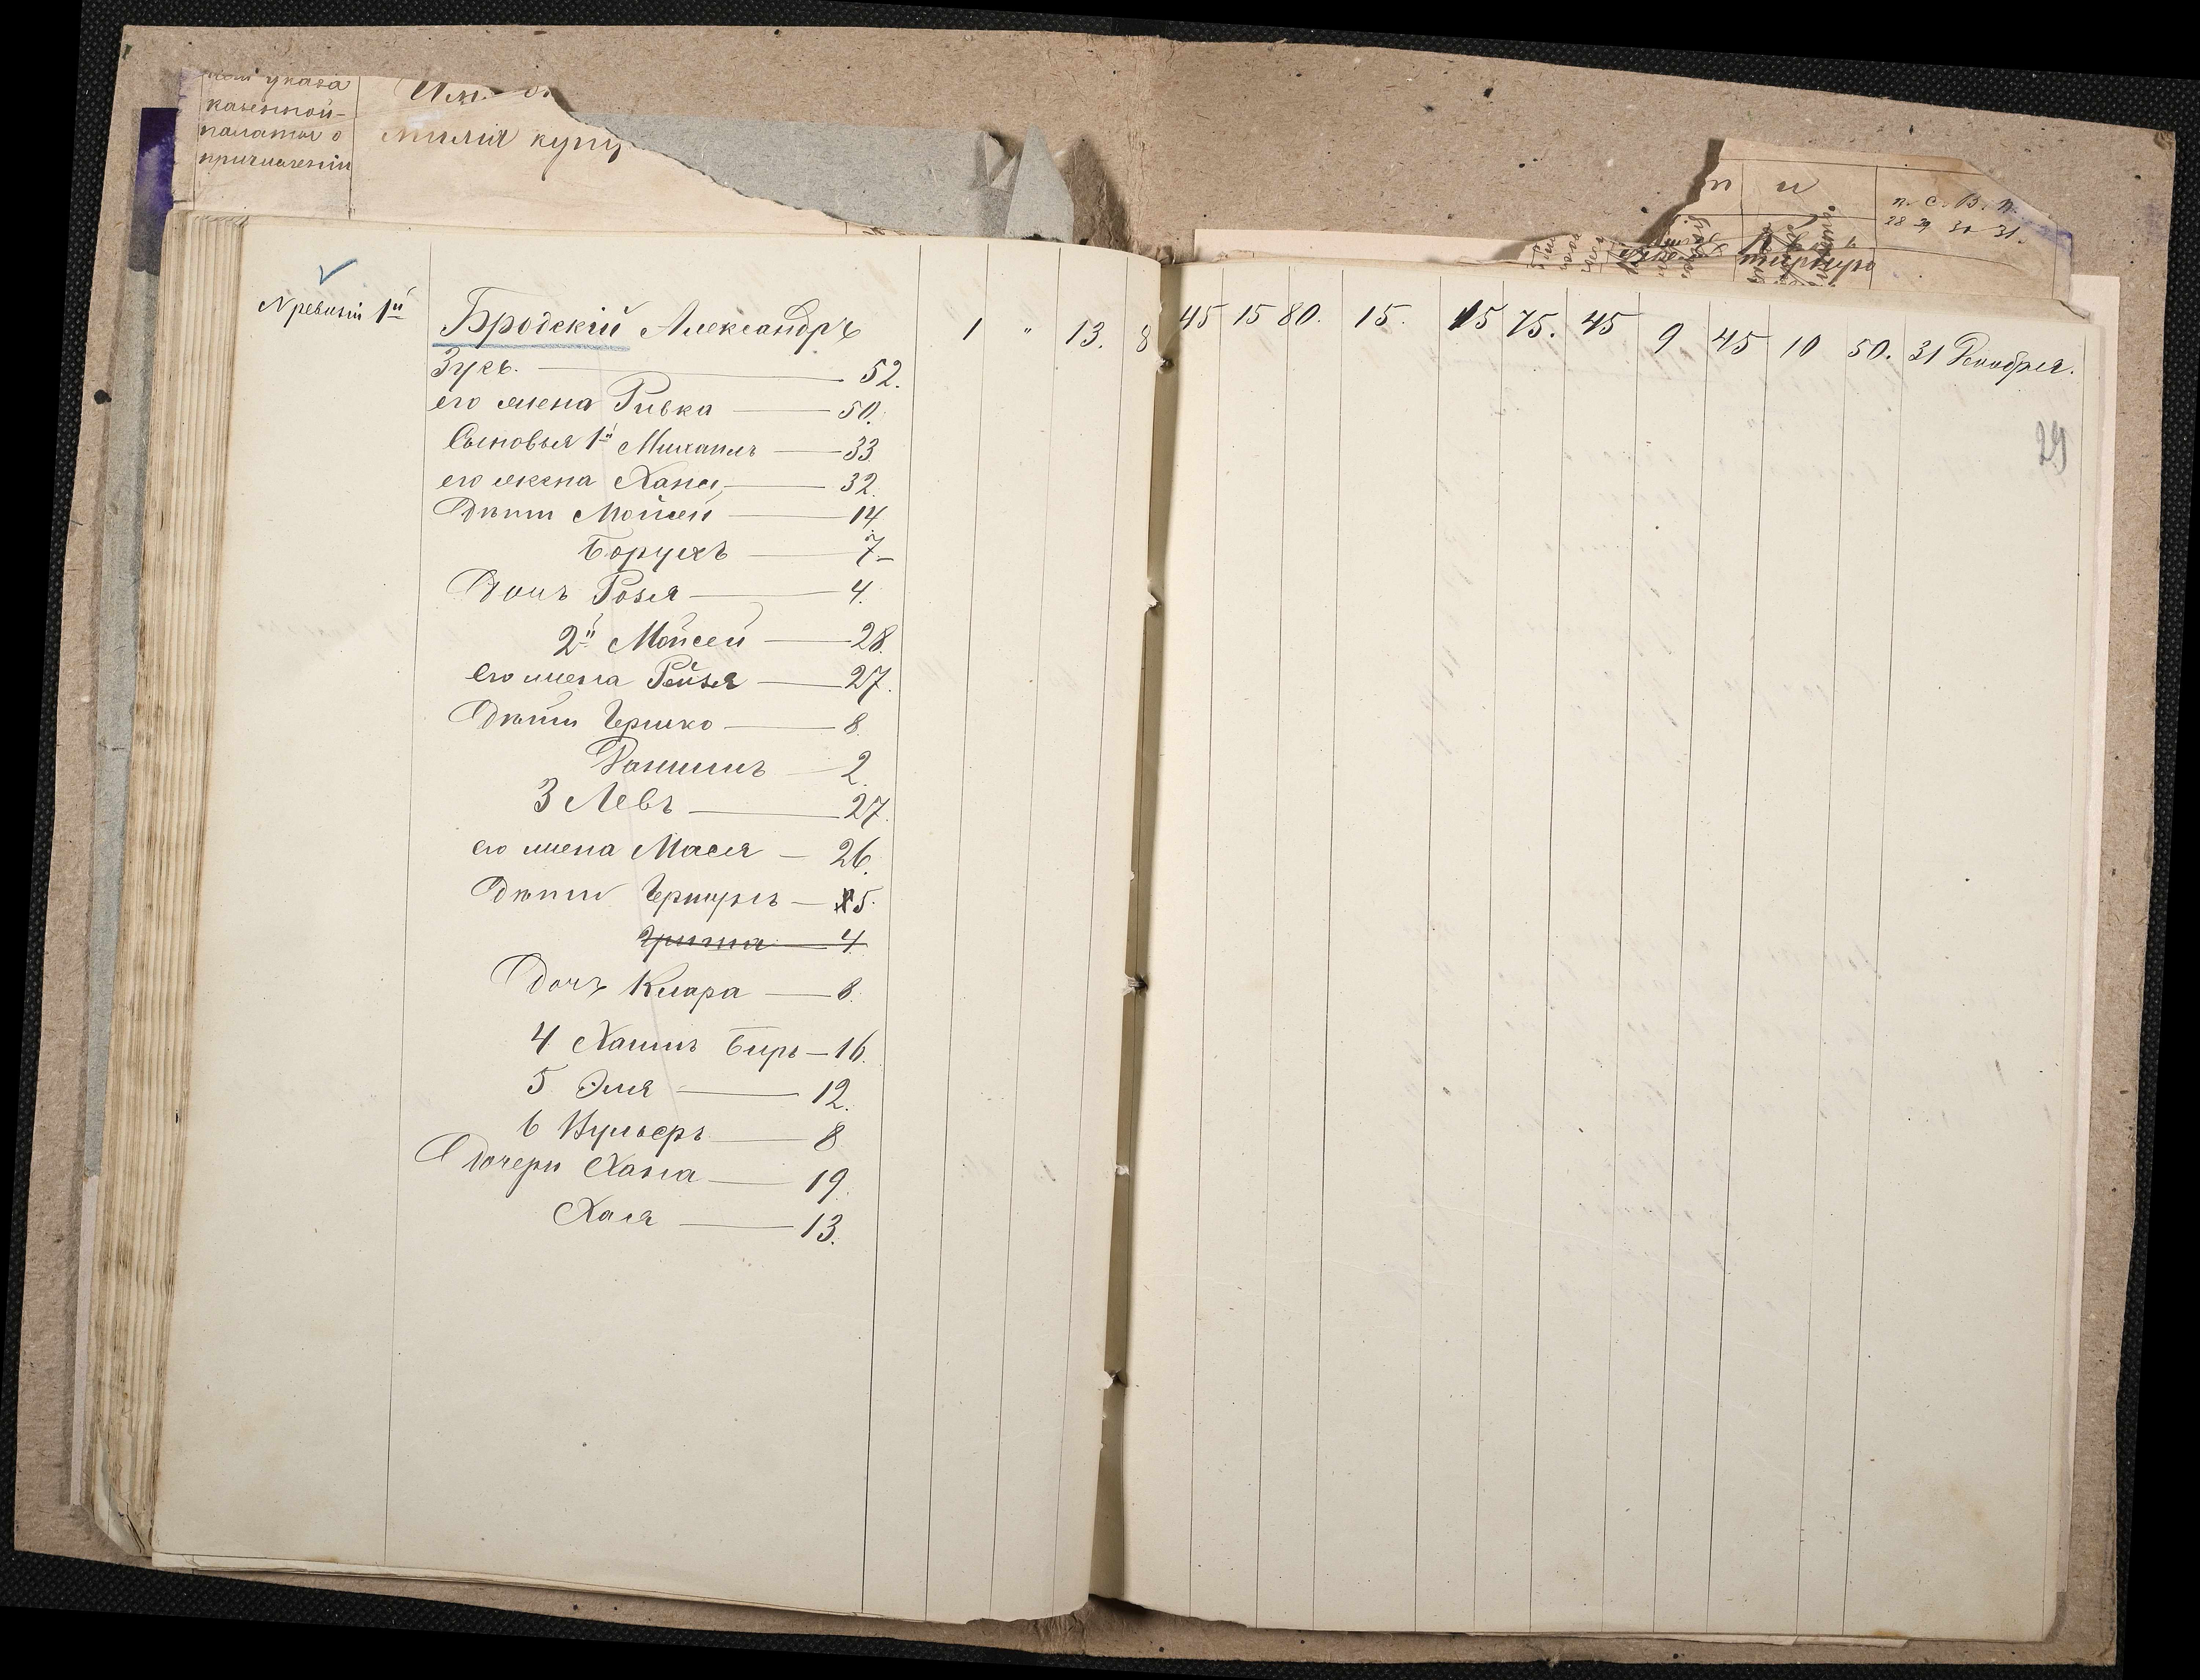 указа
казенной-
палаты о
причисленіи
милія купц
п и
п. с. В. п.
28 29 30 31.
N ревизіи 1й
Бродскій Александръ 1 " 13. 8 45 15 80. 15. 15 75. 45 9 45 10 50. 31 Декабря.
Зусь. — 52.
его жена Ривка — 50.
29
Сыновья 1й Михаилъ — 33
его жена Хана — 32.
Дѣти Мойсей — 14
Борухъ — 7-
Дочь Розя — 4.
2й Мойсей — 28.
его жена Рейзя — 27.
Дѣти Гершко — 8.
Даніилъ — 2
3 Левъ — 27.
его жена Мася — 26.
Дѣти — 5.
Гриша — 4.
Дочь Клара — 8.
4 Хаимъ Беръ — 16.
5 Эля — 12.
6 Вульферъ — 8
Дочери Хана — 19.
Хая — 13.